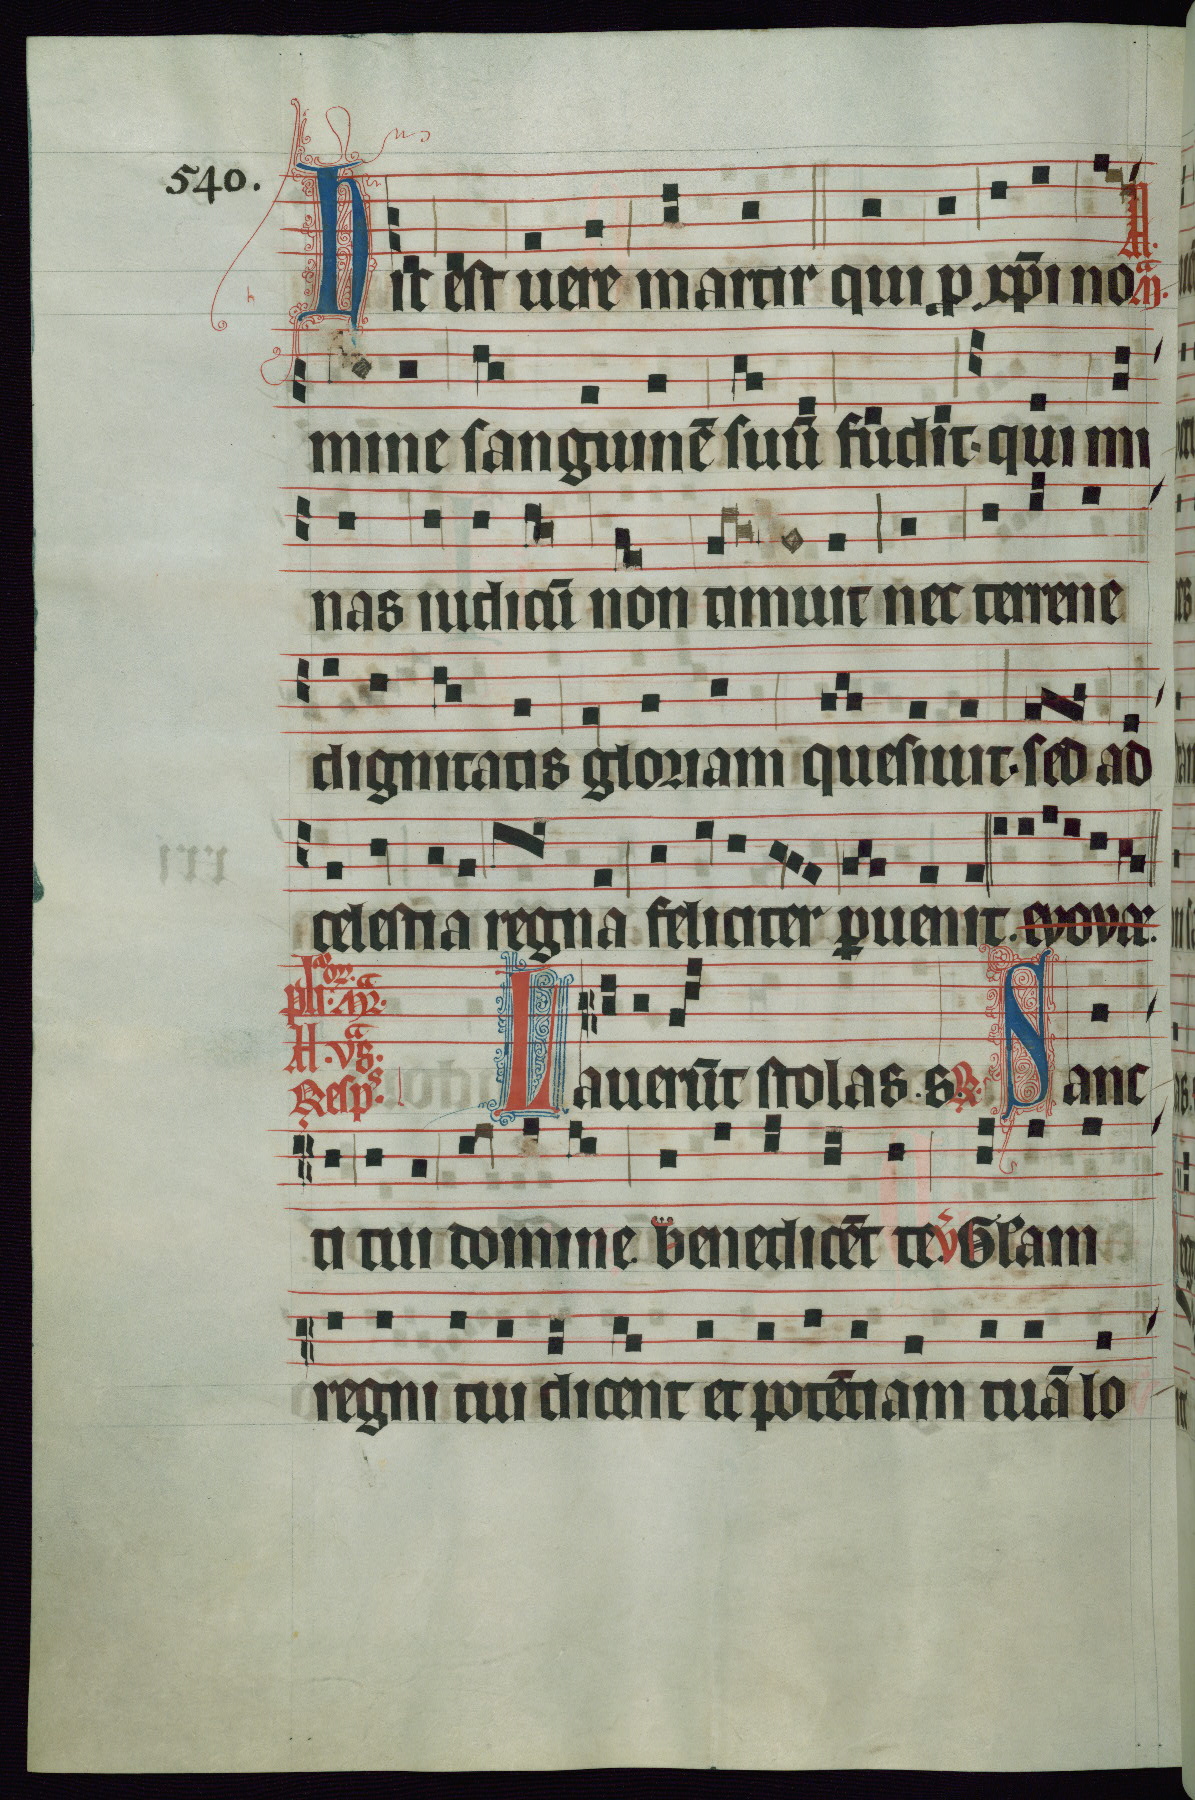 540.
Hic est uere martir qui p xp̄i no A. M̄.
mine sanguinē suū fudit· qui mi
nas iudicū non timuit nec terrene
dignitatis gloriam quesiuit· sed ad
celestia regna feliciter puenit. euouae.
Lauerūt stolas. s. R. Sanc
A. vs.
Resp̄s.
ti tui domine benedicēt te. V. Glam
regni tui dicent et potētiam tuā lo